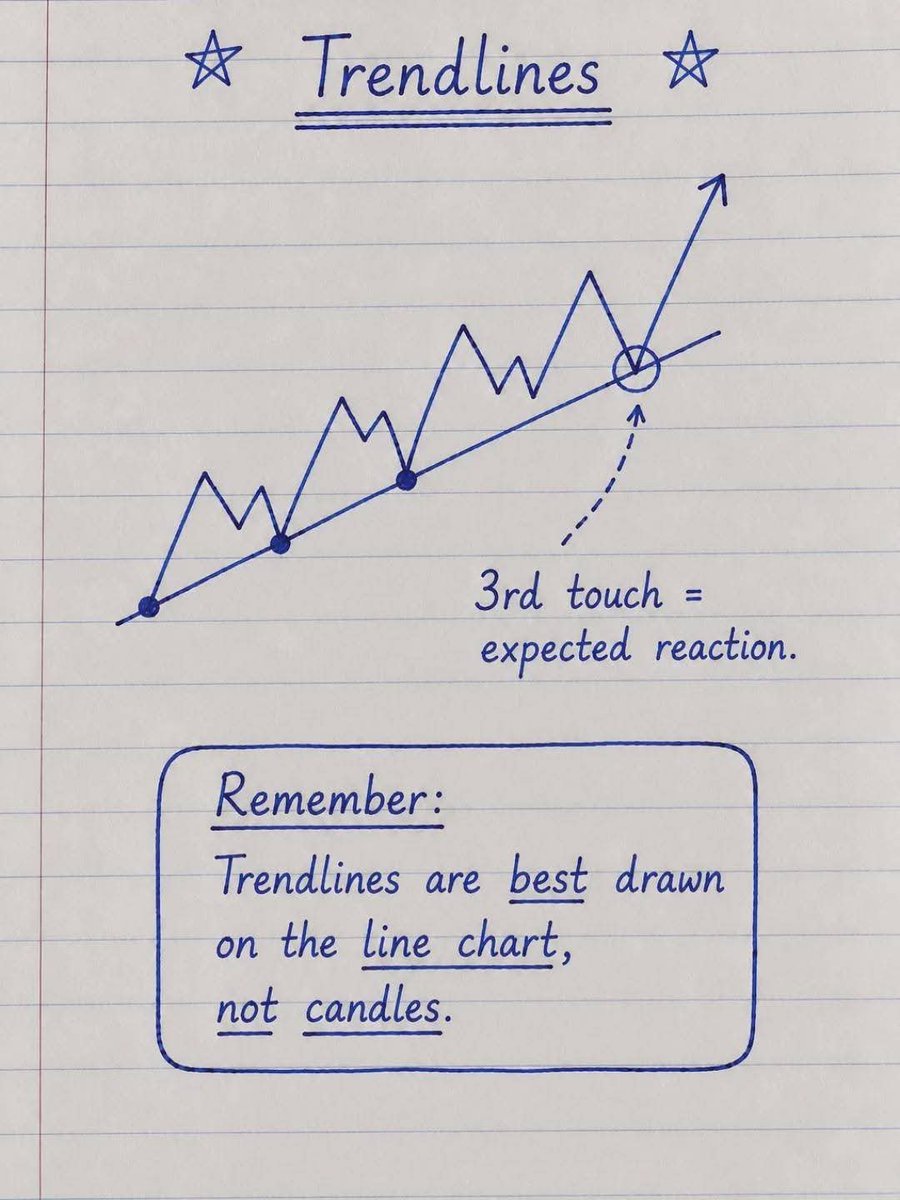 Trendlines
3rd touch =
expected reaction.
Remember:
Trendlines are best drawn
on the line chart,
not candles.